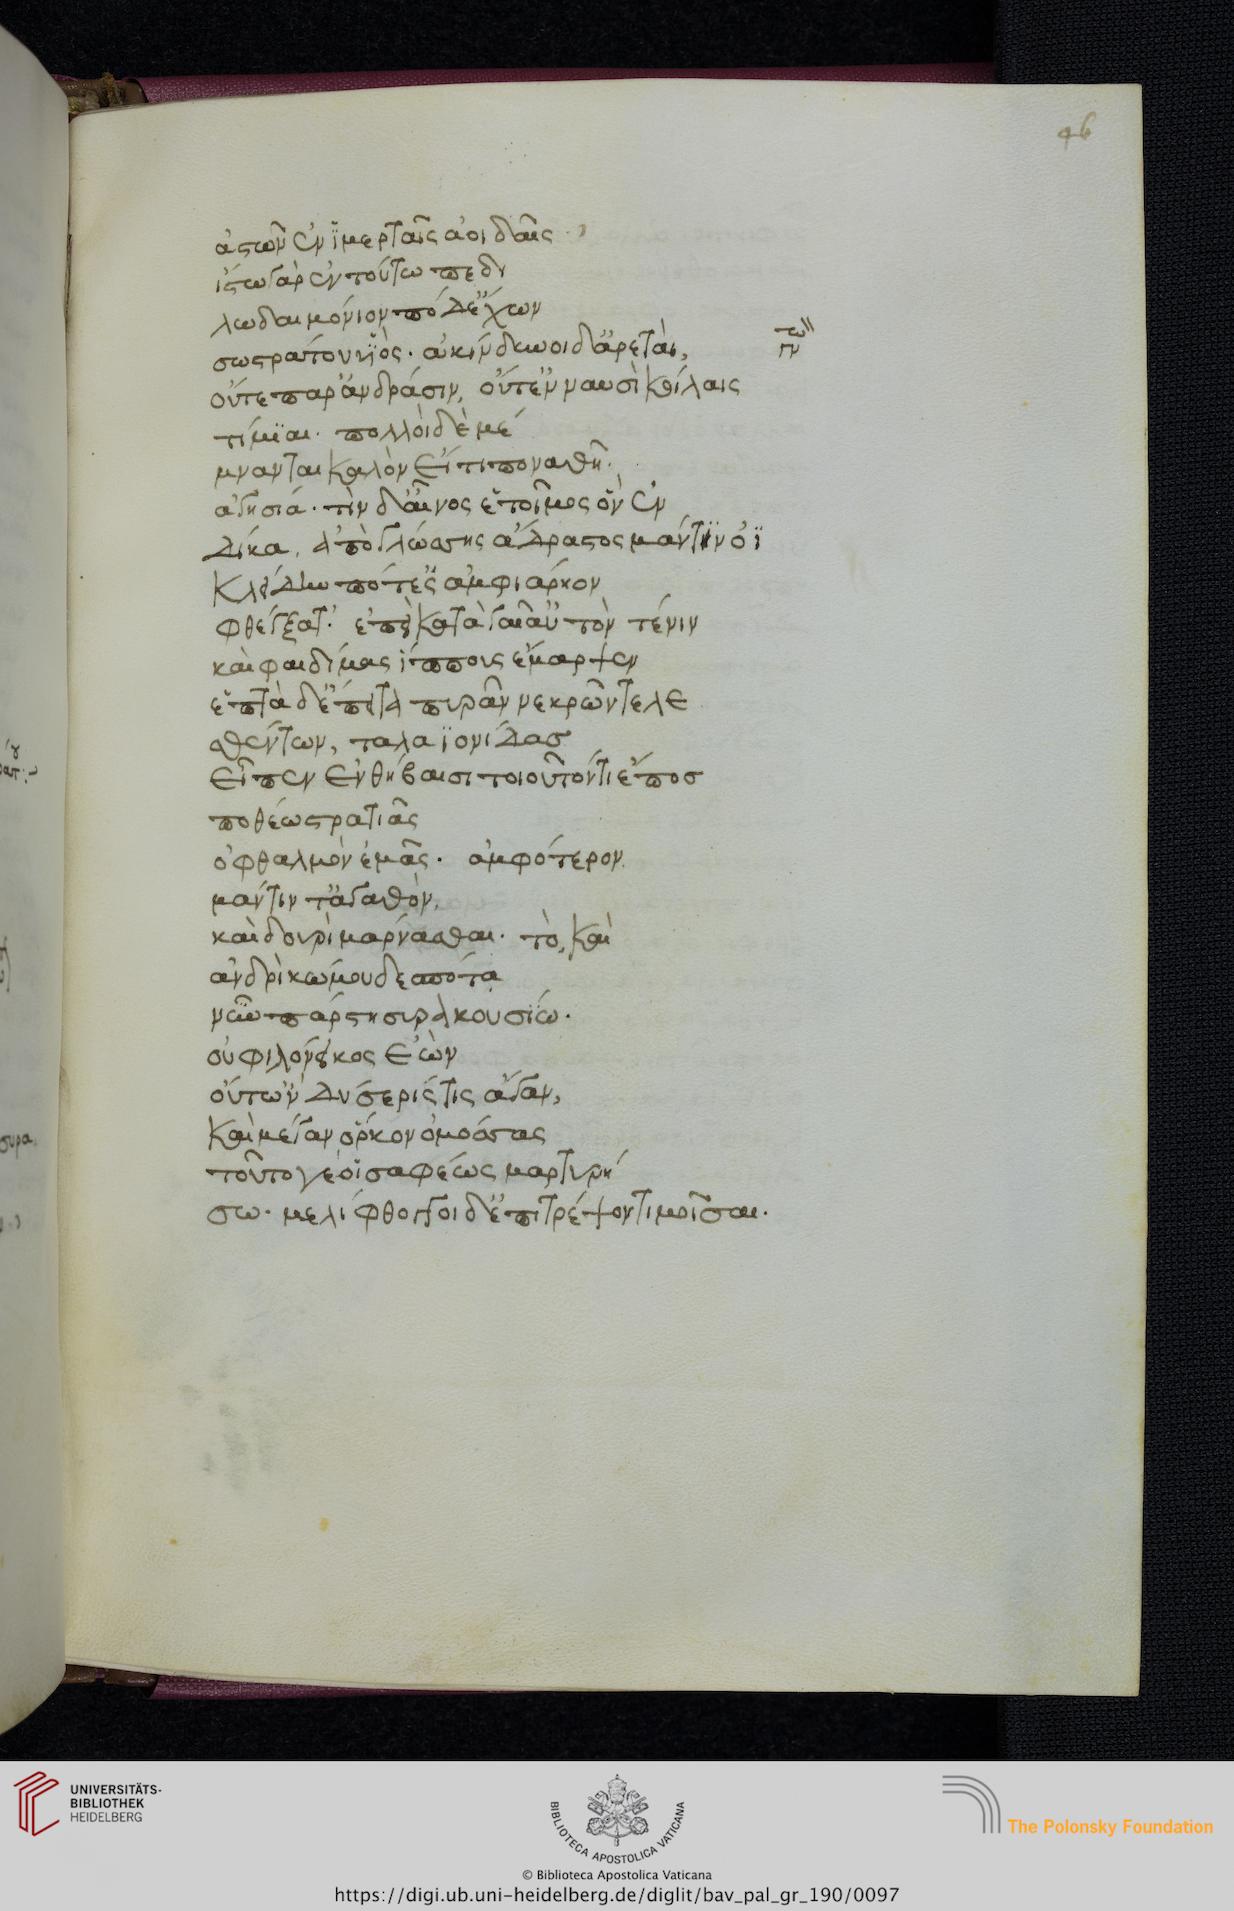 46
ἀστῶν ἐν ἱμερταῖς ἀοιδαῖς.
ἴστω γὰρ ἐν τούτω πεδί
λω δαιμόνιον πόδ' ἔχων
σωστράτου υἱὸς. ἀκίνδυνοι δ' ἀρεταὶ,
οὔτε παρ' ἀνδράσιν, οὔτ' ἐν ναυσὶ κοίλαις
τίμιαι. πολλοὶ δὲ μέ
μνανται καλὸν εἴ τι ποναθῆ.
ἁγησία. τὶν δ' αἶνος ἕτοιμος ὃν ἐν
Δίκα, ἀπὸ γλώσσης ἄδραστος μάντιν ὀϊ
κλείδην ποτ' ἐς ἀμφιάρηον
φθέγξατ'. ἐπεὶ κατὰ γαῖ' αὐτόν τέ νιν
καὶ φαιδίμας ἵππους ἔμαρψεν
ἑπτὰ δ' ἔπειτα πυρᾶν νεκρῶν τελε
σθέντων, ταλαϊονίδας
εἶπεν ἐν θήβαισι τοιοῦτόν τι ἔπος
ποθέω στρατιᾶς
ὀφθαλμὸν ἐμᾶς. ἀμφότερον
μάντιν τ' ἀγαθὸν,
καὶ δουρὶ μάρνασθαι. τὸ, καὶ
ἀνδρὶ κώμου δεσπότα
πάρεστι συρακουσίω.
οὐ φιλόνεικος ἐὼν
οὔτ' ὢν δύσερίς τις ἄγαν,
καὶ μέγαν ὅρκον ὀμόσσας
τοῦτό γέ οἱ σαφέως μαρτυρή
σω. μελίφθογγοι δ' ἐπιτρέψοντι μοῖσαι.
UNIVERSITÄTS-
BIBLIOTHEK
HEIDELBERG
BIBLIOTECA APOSTOLICA VATICANA
The Polonsky Foundation
© Biblioteca Apostolica Vaticana
https://digi.ub.uni-heidelberg.de/diglit/bav_pal_gr_190/0097